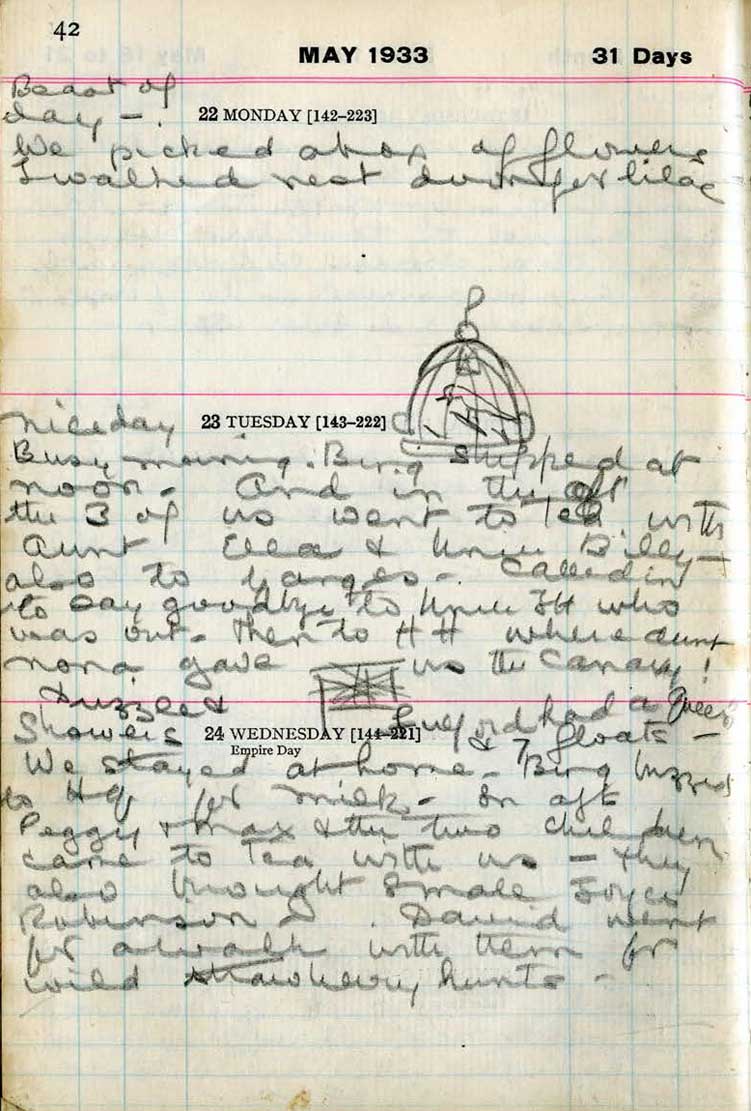 42
MAY 1933 31 Days
Beast of
day - .
22 MONDAY [142–223]
We picked a box of flowers
I walked next door for lilac
nice day
23 TUESDAY [143–222]
Busy morning. Bing shipped at
noon - And in the aft
the 3 of us went to Tea with
Aunt Ella & Uncle Billy -
also to Yarges - Called in
to say goodbye to Uncle who
was out - Then to HH where aunt
nona gave us the canary!
Drizzle &
Showers
24 WEDNESDAY [144–221]
Empire Day
had a Queen
& 7 floats -
We stayed at home - Bing buzzed
to Hq for milk - In aft
Peggy & max & the two children
came to Tea with us - they
also brought small Joyce
Robinson - David went
for a walk with them for
wild strawberry hunts -